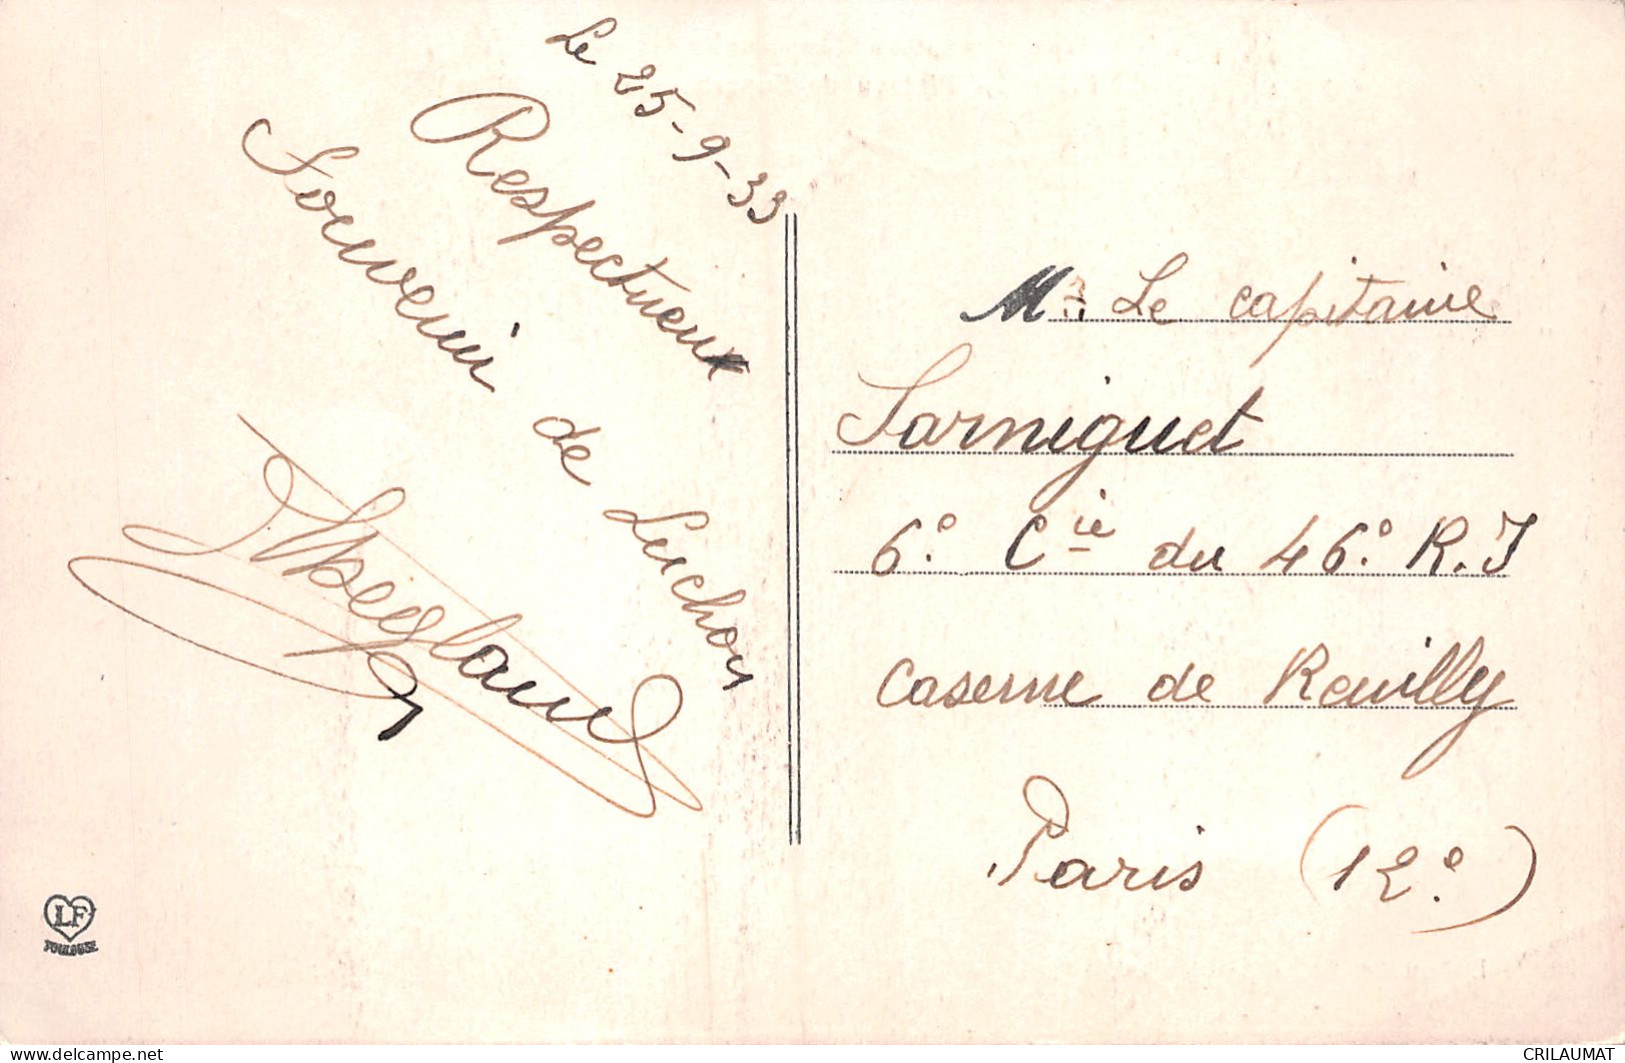 Le 25-9-33
Respectueux
Souvenir de Luchon
M. Le capitaine
Sarniguet
6e. Cie du 46e. R.I
Caserne de Reuilly
Paris (12e.)
LF
TOULOUSE
www.delcampe.net
CRILAUMAT